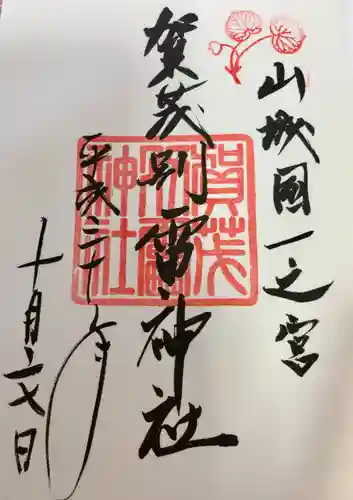 山城國一之宮
賀茂別雷神社
平成三十年
十月二七日
賀茂別雷神社